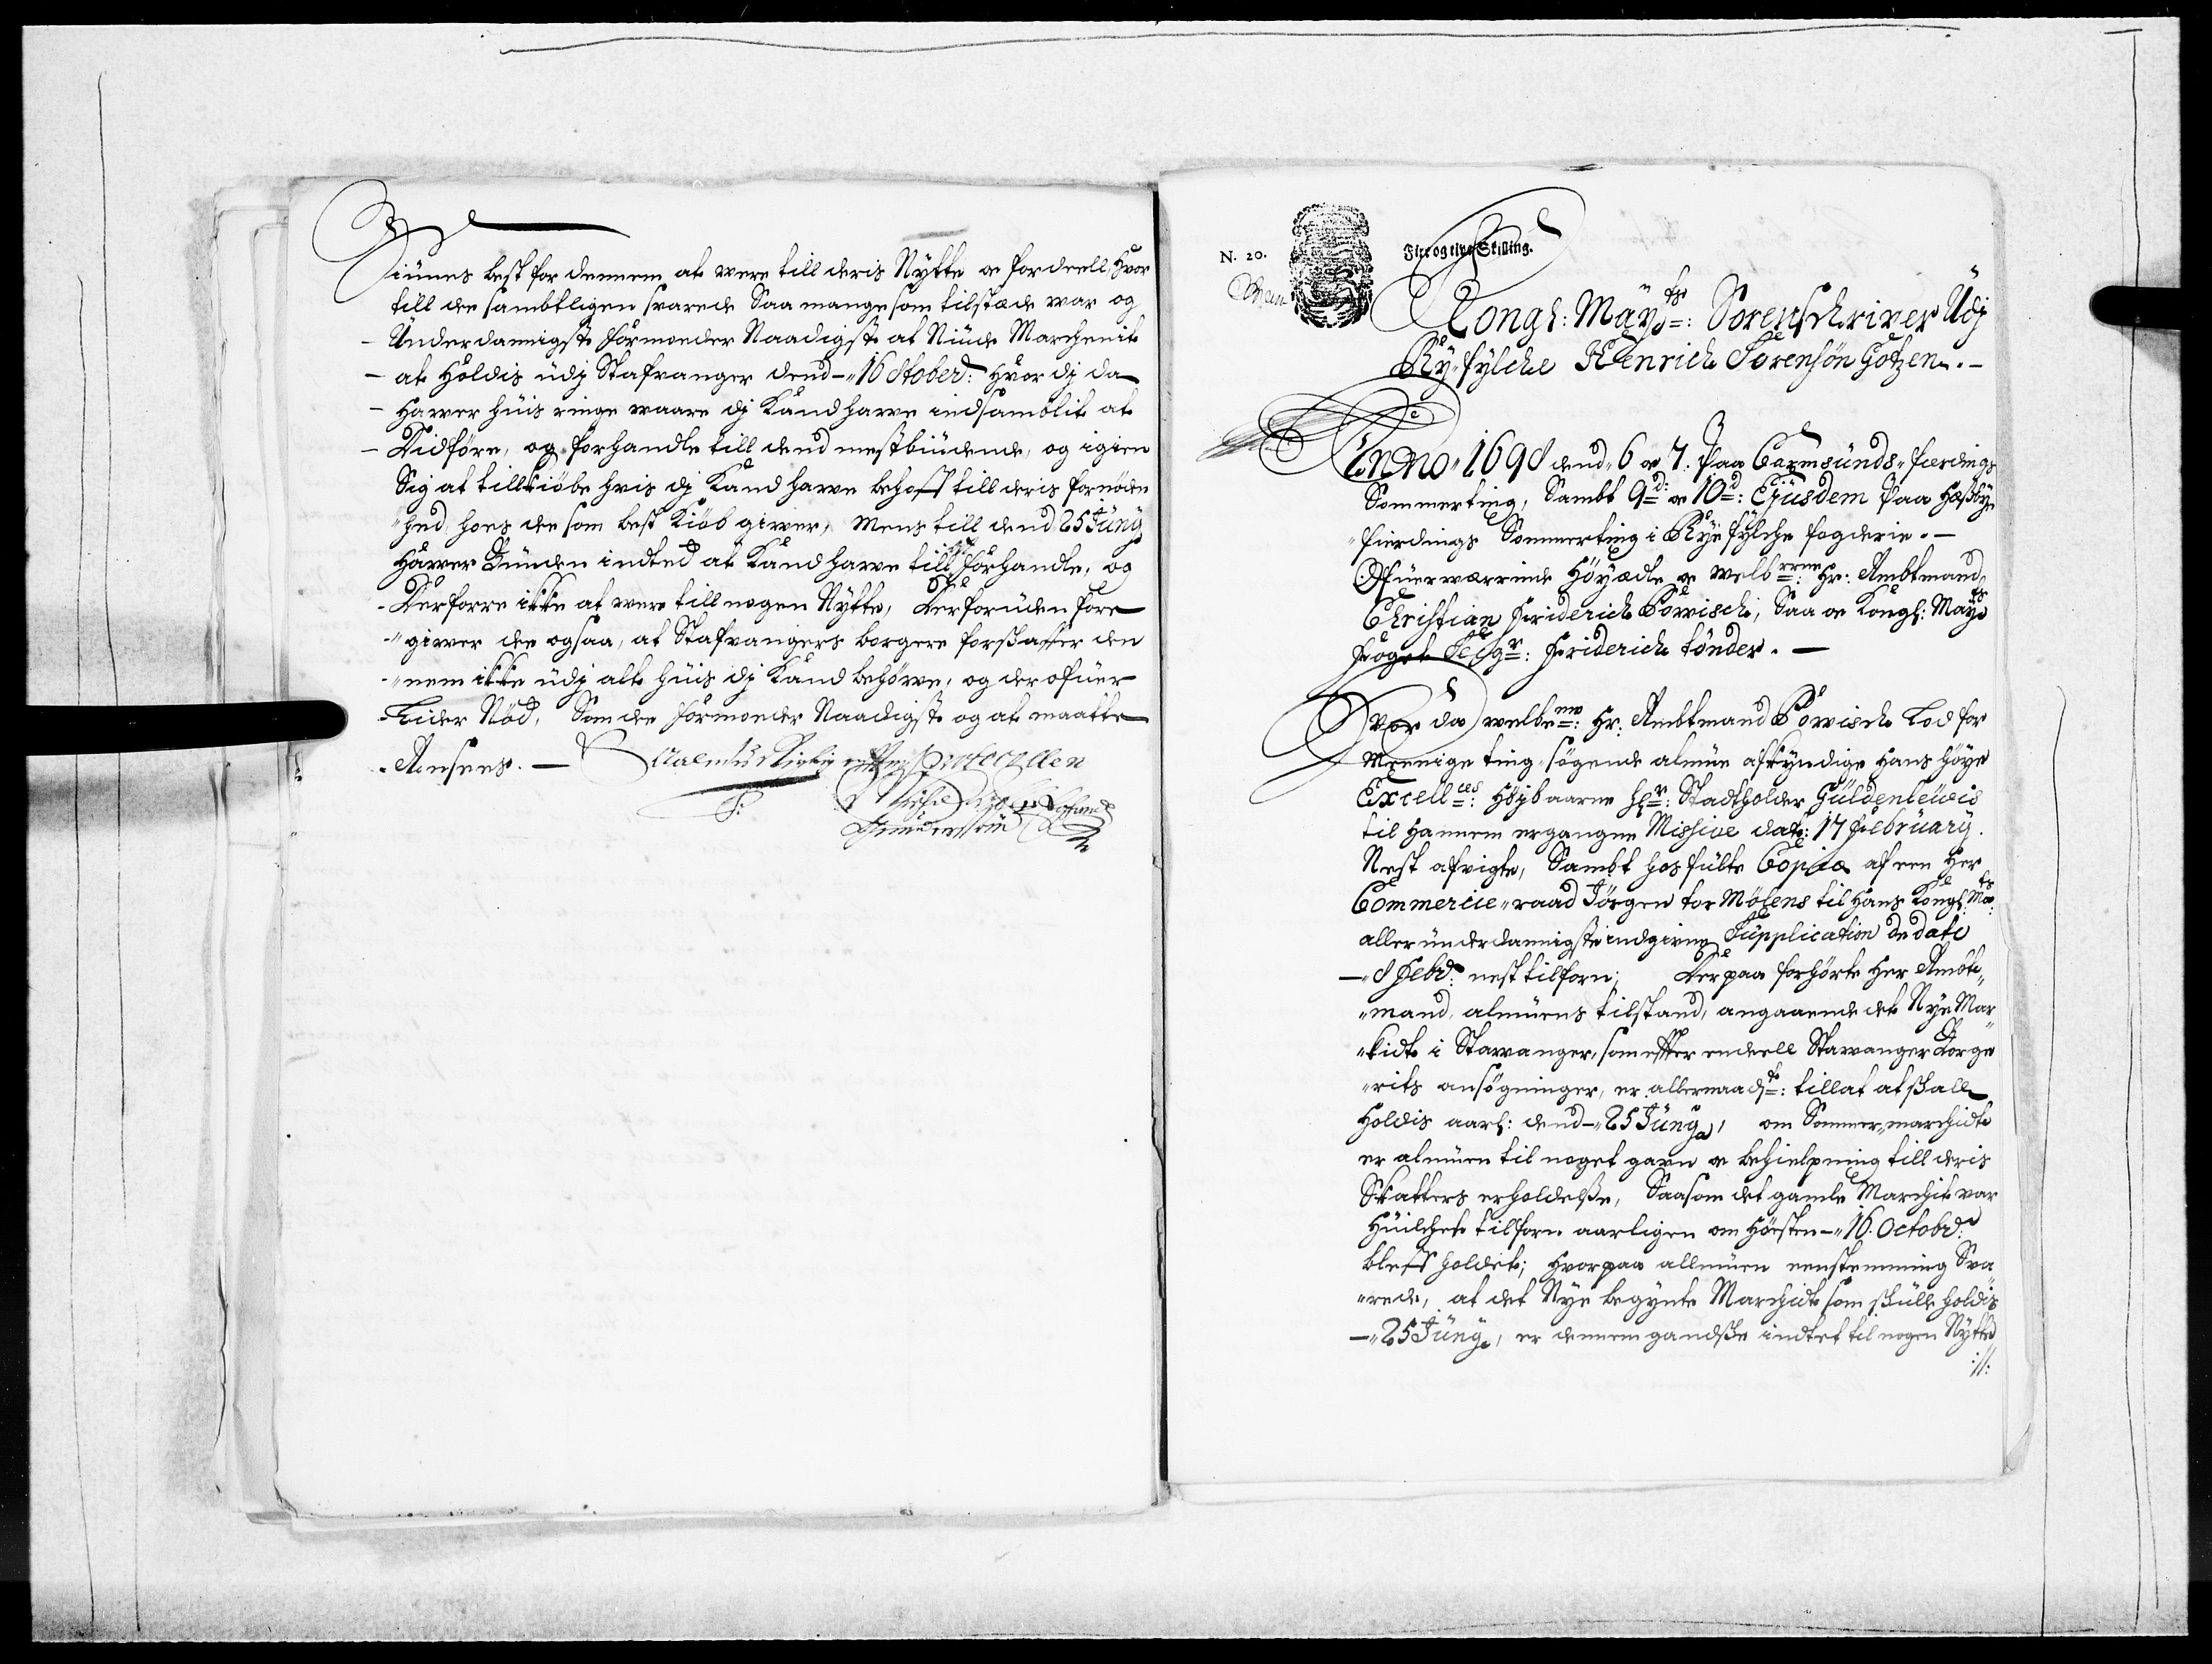 Siünes best for dennem at were till deris Nÿtte oc fordeell, Hvor
till de sambtligen svarede Saa mange som tilstæde war og
Ünderdannigste formoeder Naadigste at Niüde Marchenit
at Holdis üdj Stafvanger dend 16 October: Hvor dj da
Hawer hüis ringe waare dj Kand hawe indsamblit at
Didføre, og forhandle till dend mestbiüdende, og igien
Sig at tillkiøbe hvis dj Kand hawe behoff till deris fornøden
"hed hoes de som best Kiøb giwer, Mens till dend 25 Jünÿ
Hawer Bünden indted at Kand hawe till forhandle, og
Derforre ikke at were till nogen Nÿtte, Desforüden fore
"giwer de ogsaa, at Stafvangers borgere forskaffer den
"nem ikke üdj alt hüis dj Kand behøwe, og derofüer
Lider Nød, Som de formoeder Naadigste og at maatte
Ansees. —
Protocollen
N. 20.
Fire og tive Skilling.
Kongl: Maÿts: Sorenschriver Üdj
Rÿ-fÿlche Henrich Sørensøn Gotzen. —
Anno 1698 dend 6 oc 7. Paa Carmsünds-fierdings
Sommerting, Sambt 9d: oc 10d: Ejüsdem Paa Hæßbÿe
fierdings Sommerting i Rÿefÿlche fogderie. —
Ofüerwærrende Höÿædle oc welbrne: Hr: Ambtmand
Christian Friderich Powisch, Saa oc Kongl: Maÿts
foget Seigr: Friderich tönder. —
Hvor da welbemte: Hr: Ambtmand Powisch Lod for
Meenige ting-søgende almüe afkÿndige Hans Höÿe
Excellces: Höjbaarne Hr: Stadtholder Güldenlewis
til Hannem ergangne Missive dat: 17 Februarÿ.
Nest afvigte, Sambt hos fülte Copia af een Her
Commercie-raad Jörgen tor Möhens til Hans Kongl: Mats:
alleründerdannigste indgivne Supplication de dato
8 Febr: nest tilforn; Derpaa forhörte Her Ambt
"mand, almüens tilstand, angaaende det Nÿe Mar
"kidt i Stawanger, som effter endeell Stawanger Borge
"rits ansøgninger, er allernaadste: tillat at skall
Holdis aarl: dend 25 Jünÿ, om Sommer-marchidt
er almüen til noget gavn oc behielpning till deris
Skatters erholdelße, Saasom det gamle Marchit var
Hüilchet tilforn aarligen om Høsten 16. Octobr:
bleff holdet; Hvorpaa allmüen eenstemming Sva
"rede, at det Nÿe begÿnte Marchidt som skülle holdis
25 Jünÿ, er dennem gandske indtet til nogen Nÿtte
://: